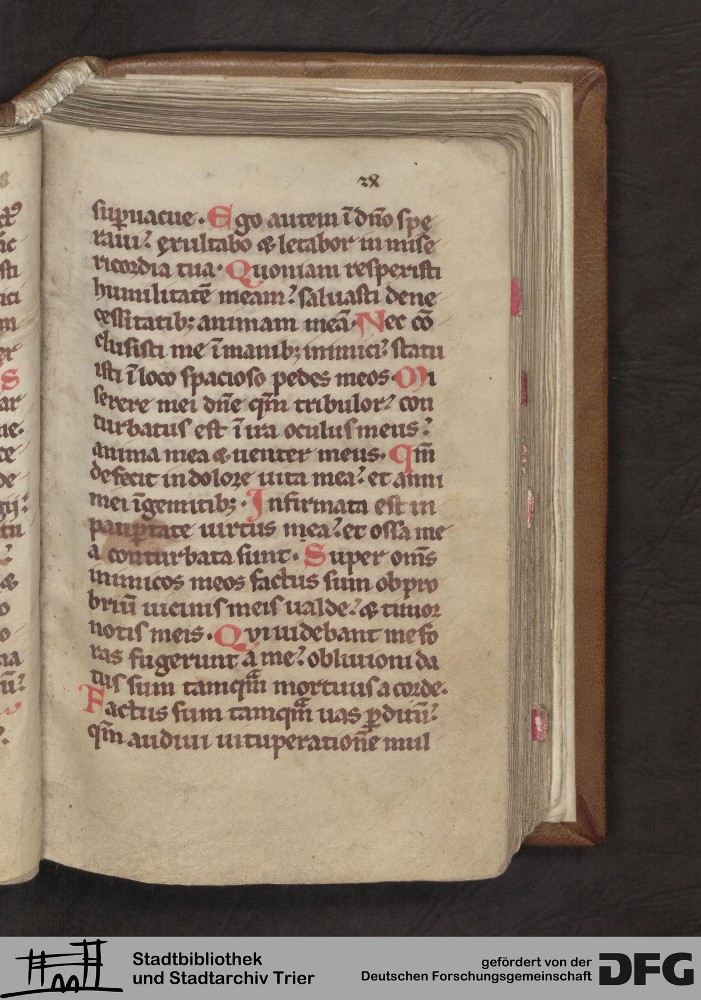 28
suꝑuacue. Ego autem ī dn̄o spe
raui? exultabo & letabor in mise
ricordia tua. Quoniam respexisti
humilitatē meam? saluasti de ne
cessitatib; animam meā. Nec cō
clusisti me ī manib; inimici? statu
isti ī loco spacioso pedes meos. Mi
serere mei dn̄e qm̄ tribulor? con
turbatus est ī ira oculus meus?
anima mea & uenter meus. Qm̄
defecit in dolore uita mea? et anni
mei īgemitib; Infirmata est in
pauꝑtate uirtus mea? et ossa me
a conturbata sunt. Super om̄s
inimicos meos factus sum obpro
briū uicinis meis ualde? & timor
notis meis. Qui uidebant me fo
ras fugerunt a me? obliuioni da
tus sum tamqm̄ mortuus a corde.
Factus sum tamqm̄ uas ꝑditū?
qm̄ audiui uituperationē mul
Stadtbibliothek
und Stadtarchiv Trier
gefördert von der
Deutschen Forschungsgemeinschaft
DFG